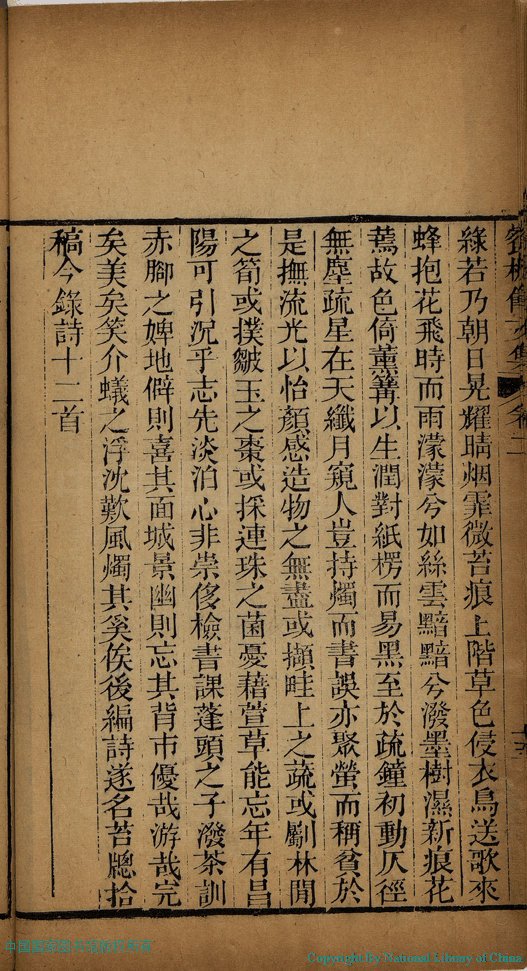 綠若乃朝日晃耀晴烟霏微苔痕上階草色侵衣鳥送歌來
蜂抱花飛時而雨濛濛兮如絲雲黯黯兮潑墨樹濕新痕花
蔫故色倚薰篝以生潤對紙楞而易黑至於疏鐘初動仄徑
無塵疏星在天纖月窺人豈持燭而書誤亦聚螢而稱貧於
是撫流光以怡顏感造物之無盡或擷畦上之蔬或劚林閒
之筍或撲皺玉之棗或採連珠之菌憂藉萱草能忘年有昌
陽可引況乎志先淡泊心非崇侈檢書課蓬頭之子潑茶訓
赤腳之婢地僻則喜其面城景幽則忘其背市優哉游哉完
矣美矣笑介蟻之浮沈歎風燭其奚俟後編詩遂名苔牕拾
稿今錄詩十二首
中国国家图书馆版权所有
Copyright by National Library of China